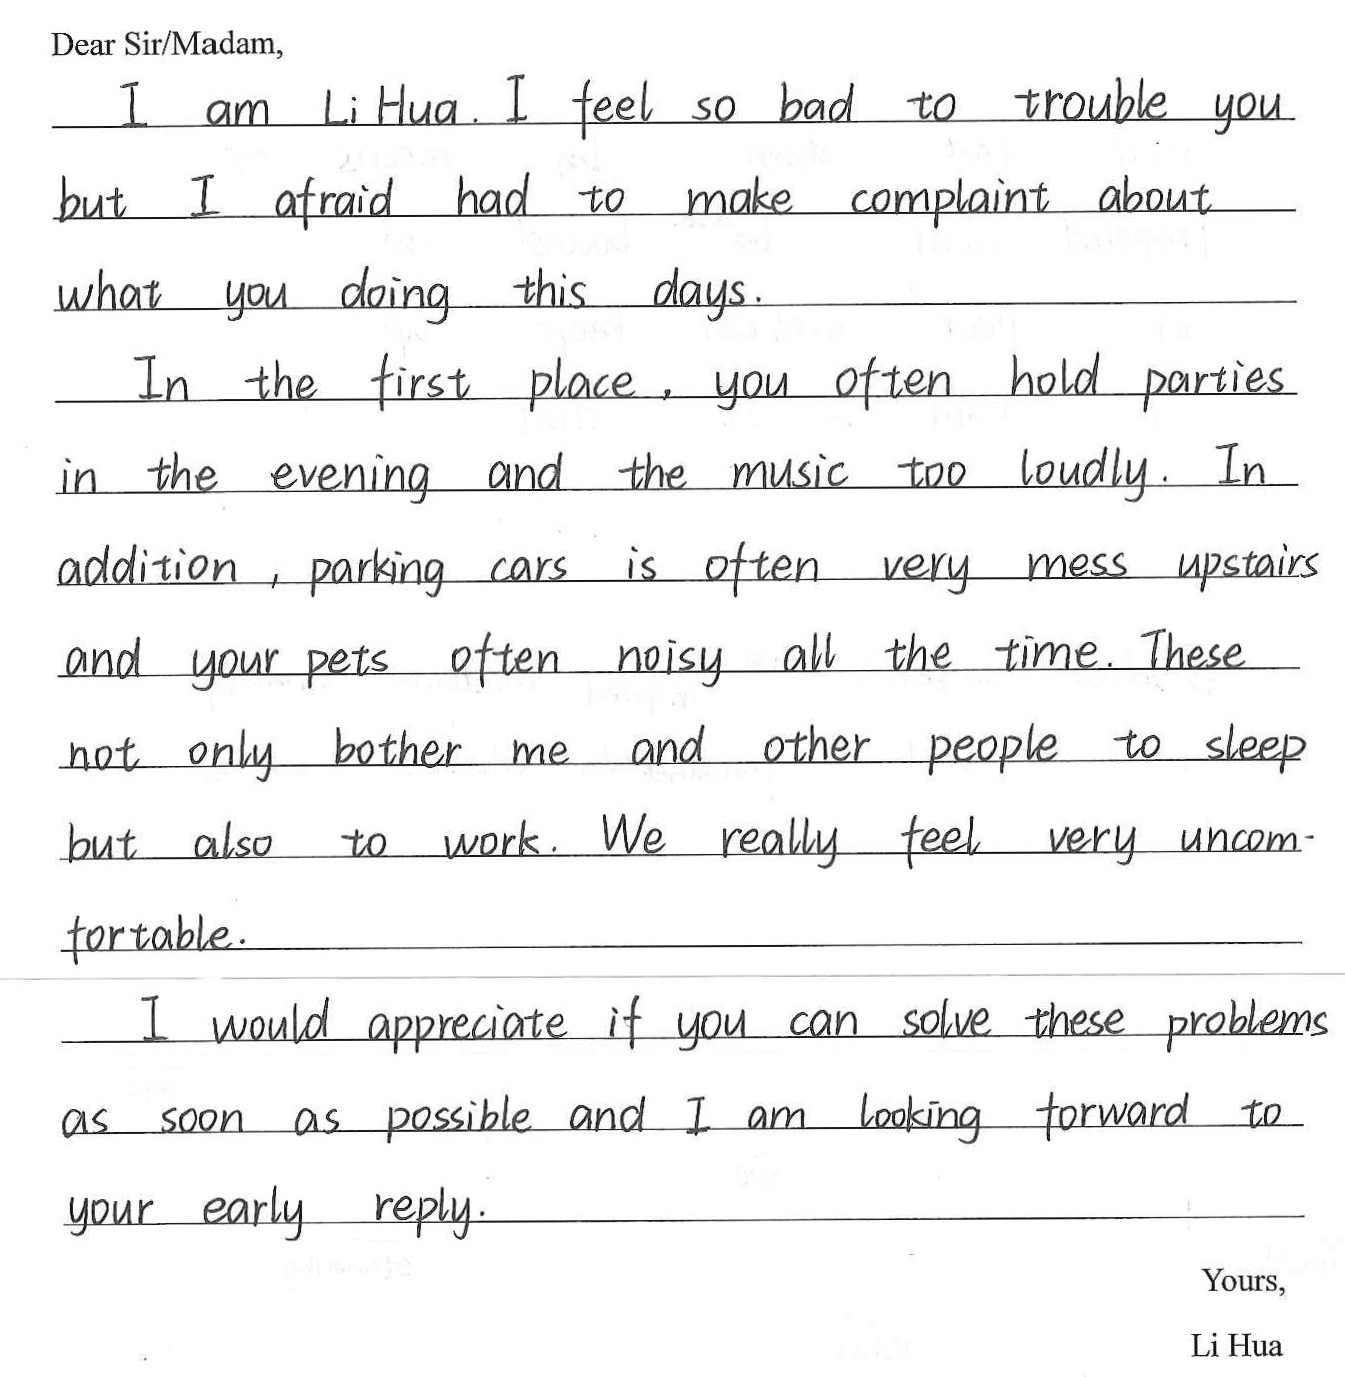 Dear Sir/Madam,
I am Li Hua. I feel so bad to trouble you
but I afraid had to make complaint about
what you doing this days.
In the first place, you often hold parties
in the evening and the music too loudly. In
addition, parking cars is often very mess upstairs
and your pets often noisy all the time. These
not only bother me and other people to sleep
but also to work. We really feel very uncom-
fortable.
I would appreciate if you can solve these problems
as soon as possible and I am looking forward to
your early reply.
Yours,
Li Hua